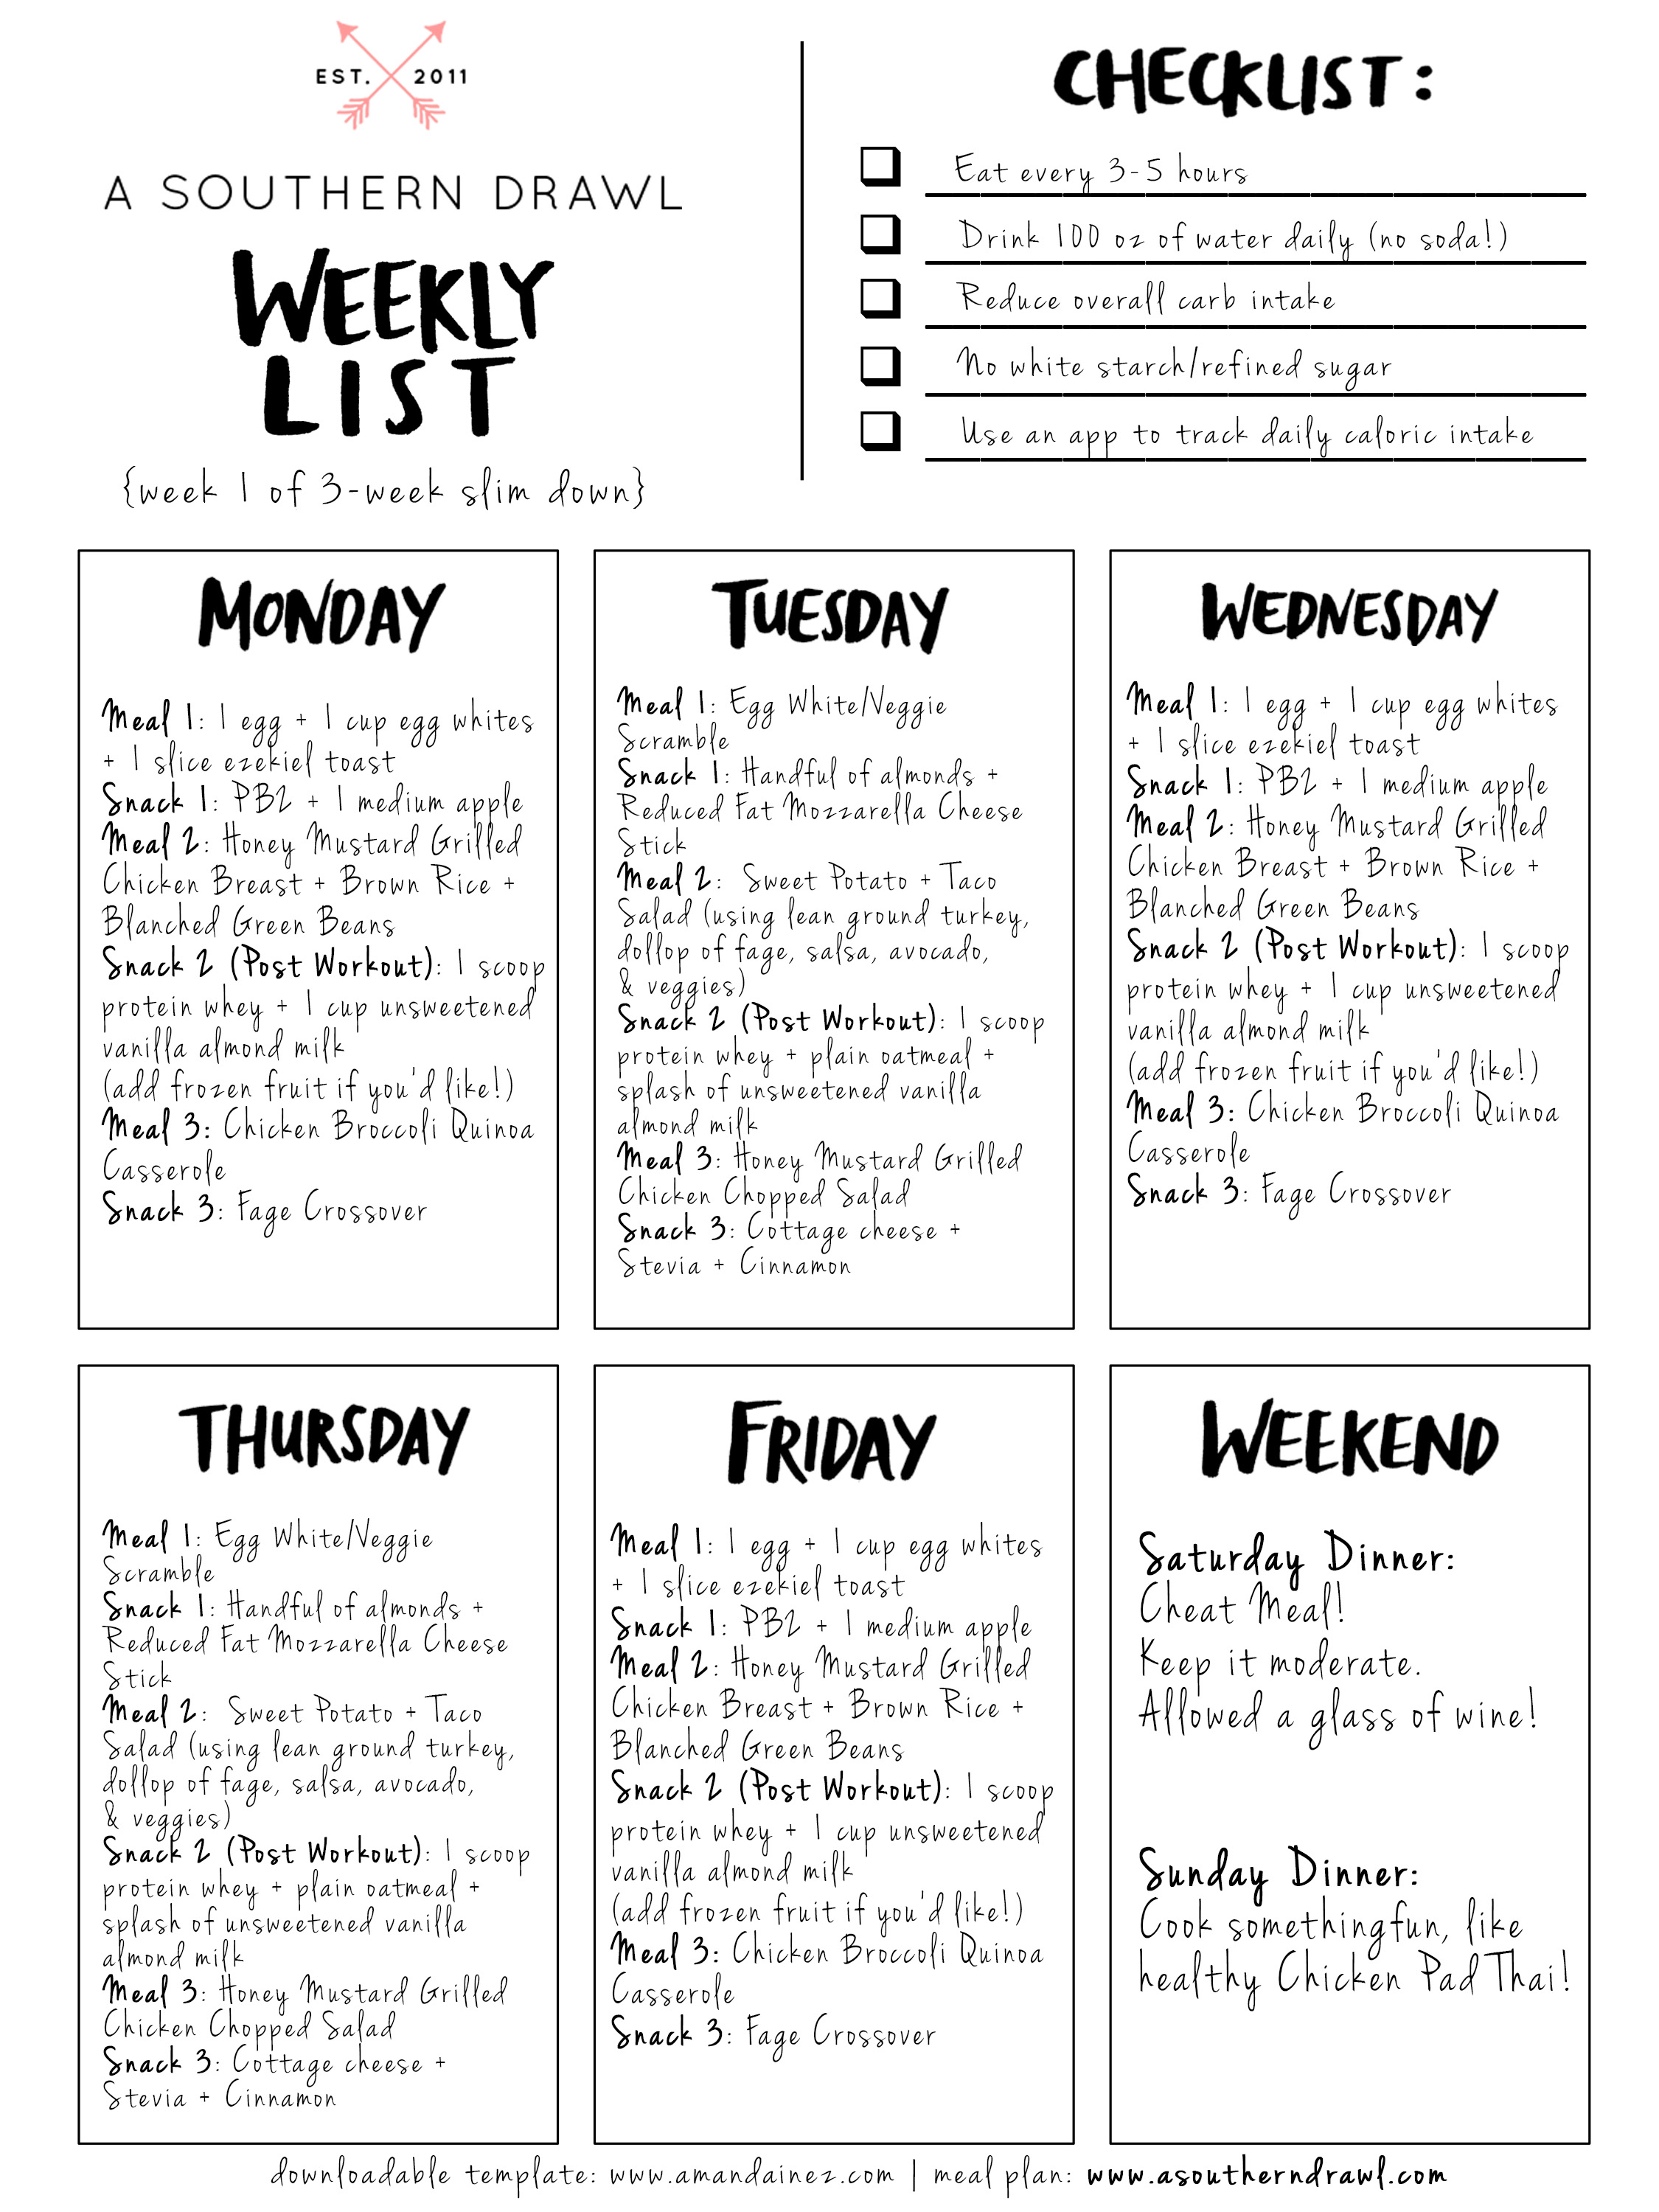 EST. 2011
A SOUTHERN DRAWL
WEEKLY
LIST
{week 1 of 3-week slim down}
CHECKLIST:
Eat every 3-5 hours
Drink 100 oz of water daily (no soda!)
Reduce overall carb intake
No white starch/refined sugar
Use an app to track daily caloric intake
MONDAY
Meal 1: 1 egg + 1 cup egg whites
+ 1 slice ezekiel toast
Snack 1: PB2 + 1 medium apple
Meal 2: Honey Mustard Grilled
Chicken Breast + Brown Rice +
Blanched Green Beans
Snack 2 (Post Workout): 1 scoop
protein whey + 1 cup unsweetened
vanilla almond milk
(add frozen fruit if you'd like!)
Meal 3: Chicken Broccoli Quinoa
Casserole
Snack 3: Fage Crossover
TUESDAY
Meal 1: Egg White/Veggie
Scramble
Snack 1: Handful of almonds +
Reduced Fat Mozzarella Cheese
Stick
Meal 2: Sweet Potato + Taco
Salad (using lean ground turkey,
dollop of fage, salsa, avocado,
& veggies)
Snack 2 (Post Workout): 1 scoop
protein whey + plain oatmeal +
splash of unsweetened vanilla
almond milk
Meal 3: Honey Mustard Grilled
Chicken Chopped Salad
Snack 3: Cottage cheese +
Stevia + Cinnamon
WEDNESDAY
Meal 1: 1 egg + 1 cup egg whites
+ 1 slice ezekiel toast
Snack 1: PB2 + 1 medium apple
Meal 2: Honey Mustard Grilled
Chicken Breast + Brown Rice +
Blanched Green Beans
Snack 2 (Post Workout): 1 scoop
protein whey + 1 cup unsweetened
vanilla almond milk
(add frozen fruit if you'd like!)
Meal 3: Chicken Broccoli Quinoa
Casserole
Snack 3: Fage Crossover
THURSDAY
Meal 1: Egg White/Veggie
Scramble
Snack 1: Handful of almonds +
Reduced Fat Mozzarella Cheese
Stick
Meal 2: Sweet Potato + Taco
Salad (using lean ground turkey,
dollop of fage, salsa, avocado,
& veggies)
Snack 2 (Post Workout): 1 scoop
protein whey + plain oatmeal +
splash of unsweetened vanilla
almond milk
Meal 3: Honey Mustard Grilled
Chicken Chopped Salad
Snack 3: Cottage cheese +
Stevia + Cinnamon
FRIDAY
Meal 1: 1 egg + 1 cup egg whites
+ 1 slice ezekiel toast
Snack 1: PB2 + 1 medium apple
Meal 2: Honey Mustard Grilled
Chicken Breast + Brown Rice +
Blanched Green Beans
Snack 2 (Post Workout): 1 scoop
protein whey + 1 cup unsweetened
vanilla almond milk
(add frozen fruit if you'd like!)
Meal 3: Chicken Broccoli Quinoa
Casserole
Snack 3: Fage Crossover
WEEKEND
Saturday Dinner:
Cheat Meal!
Keep it moderate.
Allowed a glass of wine!
Sunday Dinner:
Cook something fun, like
healthy Chicken Pad Thai!
downloadable template: www.amandainez.com | meal plan: www.asoutherndrawl.com